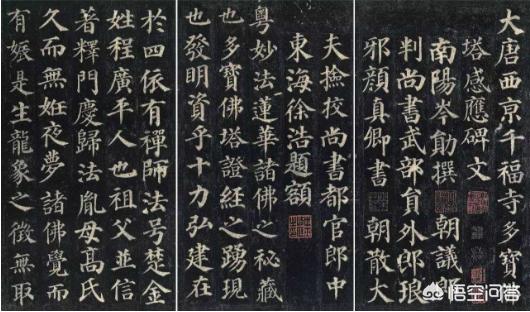 大唐西京千福寺多寶
塔感應碑文
南陽岑勛撰 朝議郎
判尚書武部員外郎琅
邪顏真卿書 朝散大
夫撿挍尚書都官郎中
東海徐浩題額
粵妙法蓮華諸佛之秘藏
也多寶佛塔證經之踴現
也發明資乎十力弘建在
於四依有禪師法号楚金
姓程廣平人也祖父並信
著釋門慶歸法胤母髙氏
久而無姙夜夢諸佛覺而
有娠是生龍象之徵無取
悟空问答